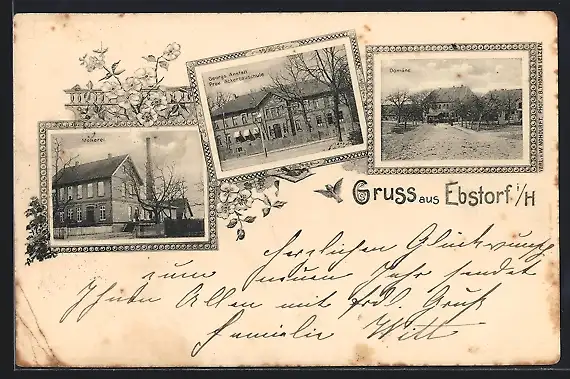 Molkerei
Georgs Anstalt
Prov. Ackerbauschule
Domäne
Gruss aus Ebstorf i/H
herzlichen Glückwunsch
zum neuen Jahr sendet
Ihnen Allen mit frdl. Gruß
Familie Witt